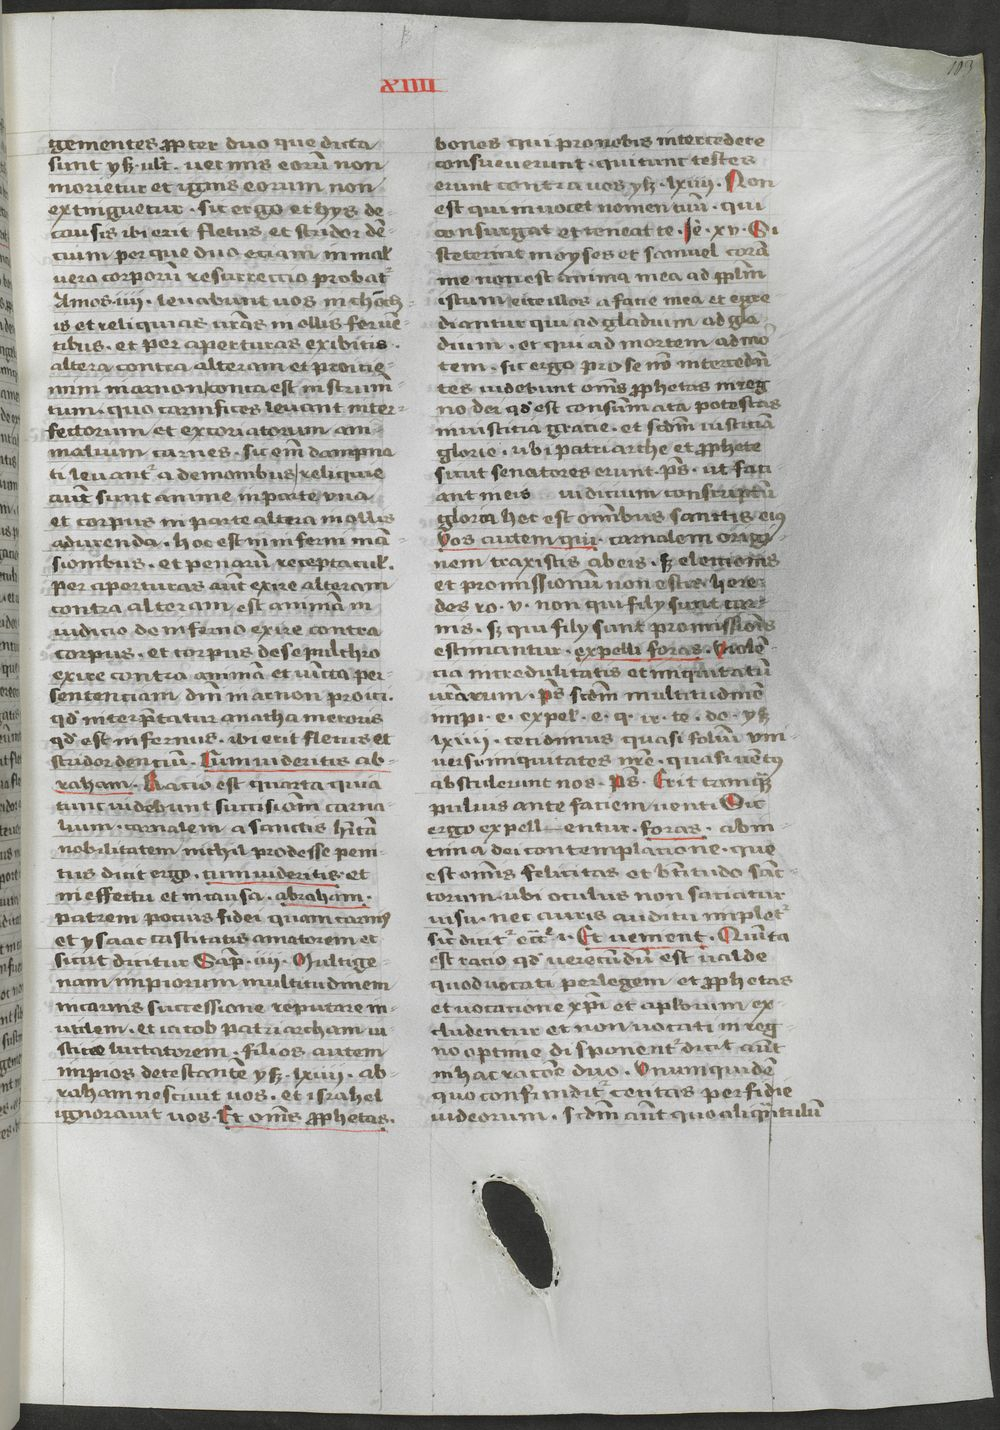 103
XIIII
gementes ꝓpter duo que dicta
sunt ysꝫ. ult̄. uermis eorū non
morietur et ignis eorum non
extinguetur. sic ergo et hys de-
causis ibi erit fletus et stridor dē-
cium per que duo etiam in mal̄
vera corporū resurrectio probat᷑
Amos. iiii. leuabunt uos in
is et reliquias ur̄as in ollis ferue-
tibus. et per aperturas exibitis.
altera contra alteram et proicie-
mini in armon conta est instrum̄-
tum. quo carnifices leuant inter-
fectorum et excoriatorum ani-
malium carnes. sic em̄ dampna
ti leuant᷑ a demonibus reliquie
aūt sunt anime in parte una
et corpus in parte altera in ollis
aducenda. hoc est in inferni mā-
sionibus. et penarū receptacul̄.
per aperturas aūt exire alteram
contra alteram est animā in
iudicio de inferno exire contra
corpus. et corpus de sepulchro
exire contra animā et uūcta per-
sentenciam dn̄i in armon proici.
qd̓ interp̄tatur anathameroris
qd̓ est infernus. ibi erit fletus et
stridor denciū. Cum uideritis ab-
raham. Racio est quarta quia
tunc uidebunt successiōm carna-
lium. carnalem a sanctis
nobilitatem nichil prodesse peni-
tus dicit ergo. cum uideritis. et
in effectu et in causa. abraham.
patrem pocius fidei quam carnis
et ysaac castitatis amatorem et
sicut dicitur Sap̄. iiii. Multige-
nam impiorum multitudinem
in carnis successione reputare in-
utilem. et iacob patriarcham iu-
sticie luctatorem. filios autem
impios detestante ysꝫ. lxiiii. ab-
raham nesciuit uos. et israhel
ignorauit uos. Et om̄s ꝓphetas.
bonos qui pro nobis intercedere
consueuerunt. qui tunc testes
erunt contra uos ysꝫ. lxiiii. Non
est qui inuocet nomen tuū. qui
consurgat et teneat te. Je. xv. Si
steterint moyses et samuel corā
me non est anima mea ad ppl̄m
istum eice illos a facie mea et egre
diantur qui ad gladium ad gla
dium. et qui ad mortem ad mor̄
tem. sic ergo pro se nō interceden̄
tes uidebunt om̄s ꝓphetas in reg
no dei qd̓ est consummata potestas
in iusticia gracie. et scd̄m iusticiā
glorie. ubi patriarche et ꝓphete
sicut senatores erunt. ps̄. ut faci
ant in eis iudicium conscriptū
gloria hec est omībus sanctis eius
Vos autem qui. carnalem origi
nem traxistis ab eis. sꝫ electionis
et promissionū non estis here-
des ro. v. non qui filij sunt car-
nis. sꝫ qui filij sunt promissiōis
estimantur. expelli foras. Violē-
cia incredulitatis et iniquitatum
ur̄arum. ps̄ scd̄m multitudinē
impi. e. expel. e. q. ir. te. do. ysꝫ
lxiiii. cecidimus quasi foliū uni-
uersi iniquitates nr̄e. quasi uentus
abstulerunt nos. ps̄. Erit tamqꝫ
puluis ante faciem uenti Sic
ergo expell entur. foras. ab in-
tima dei contemplacione. que
est om̄is felicitas et btītudo sāc-
torum. ubi oculus non saciatur
uisu. nec auris auditu implet᷑
sic dicit᷑ ecc̄. i. Et uenient. Quinta
est racio qd̓ uerecundū est ualde
quod uocati per legem et ꝓphetas
et uocatione xp̄i et apl̓orum ex-
cluduntur et non uocati in reg-
no optime disponent᷑ dicit aūt
in hac racōe duo. Unum quidē
quo confundit᷑ cecitas perfidie
iudeorum. scd̄m aūt quo aliqͣntulū